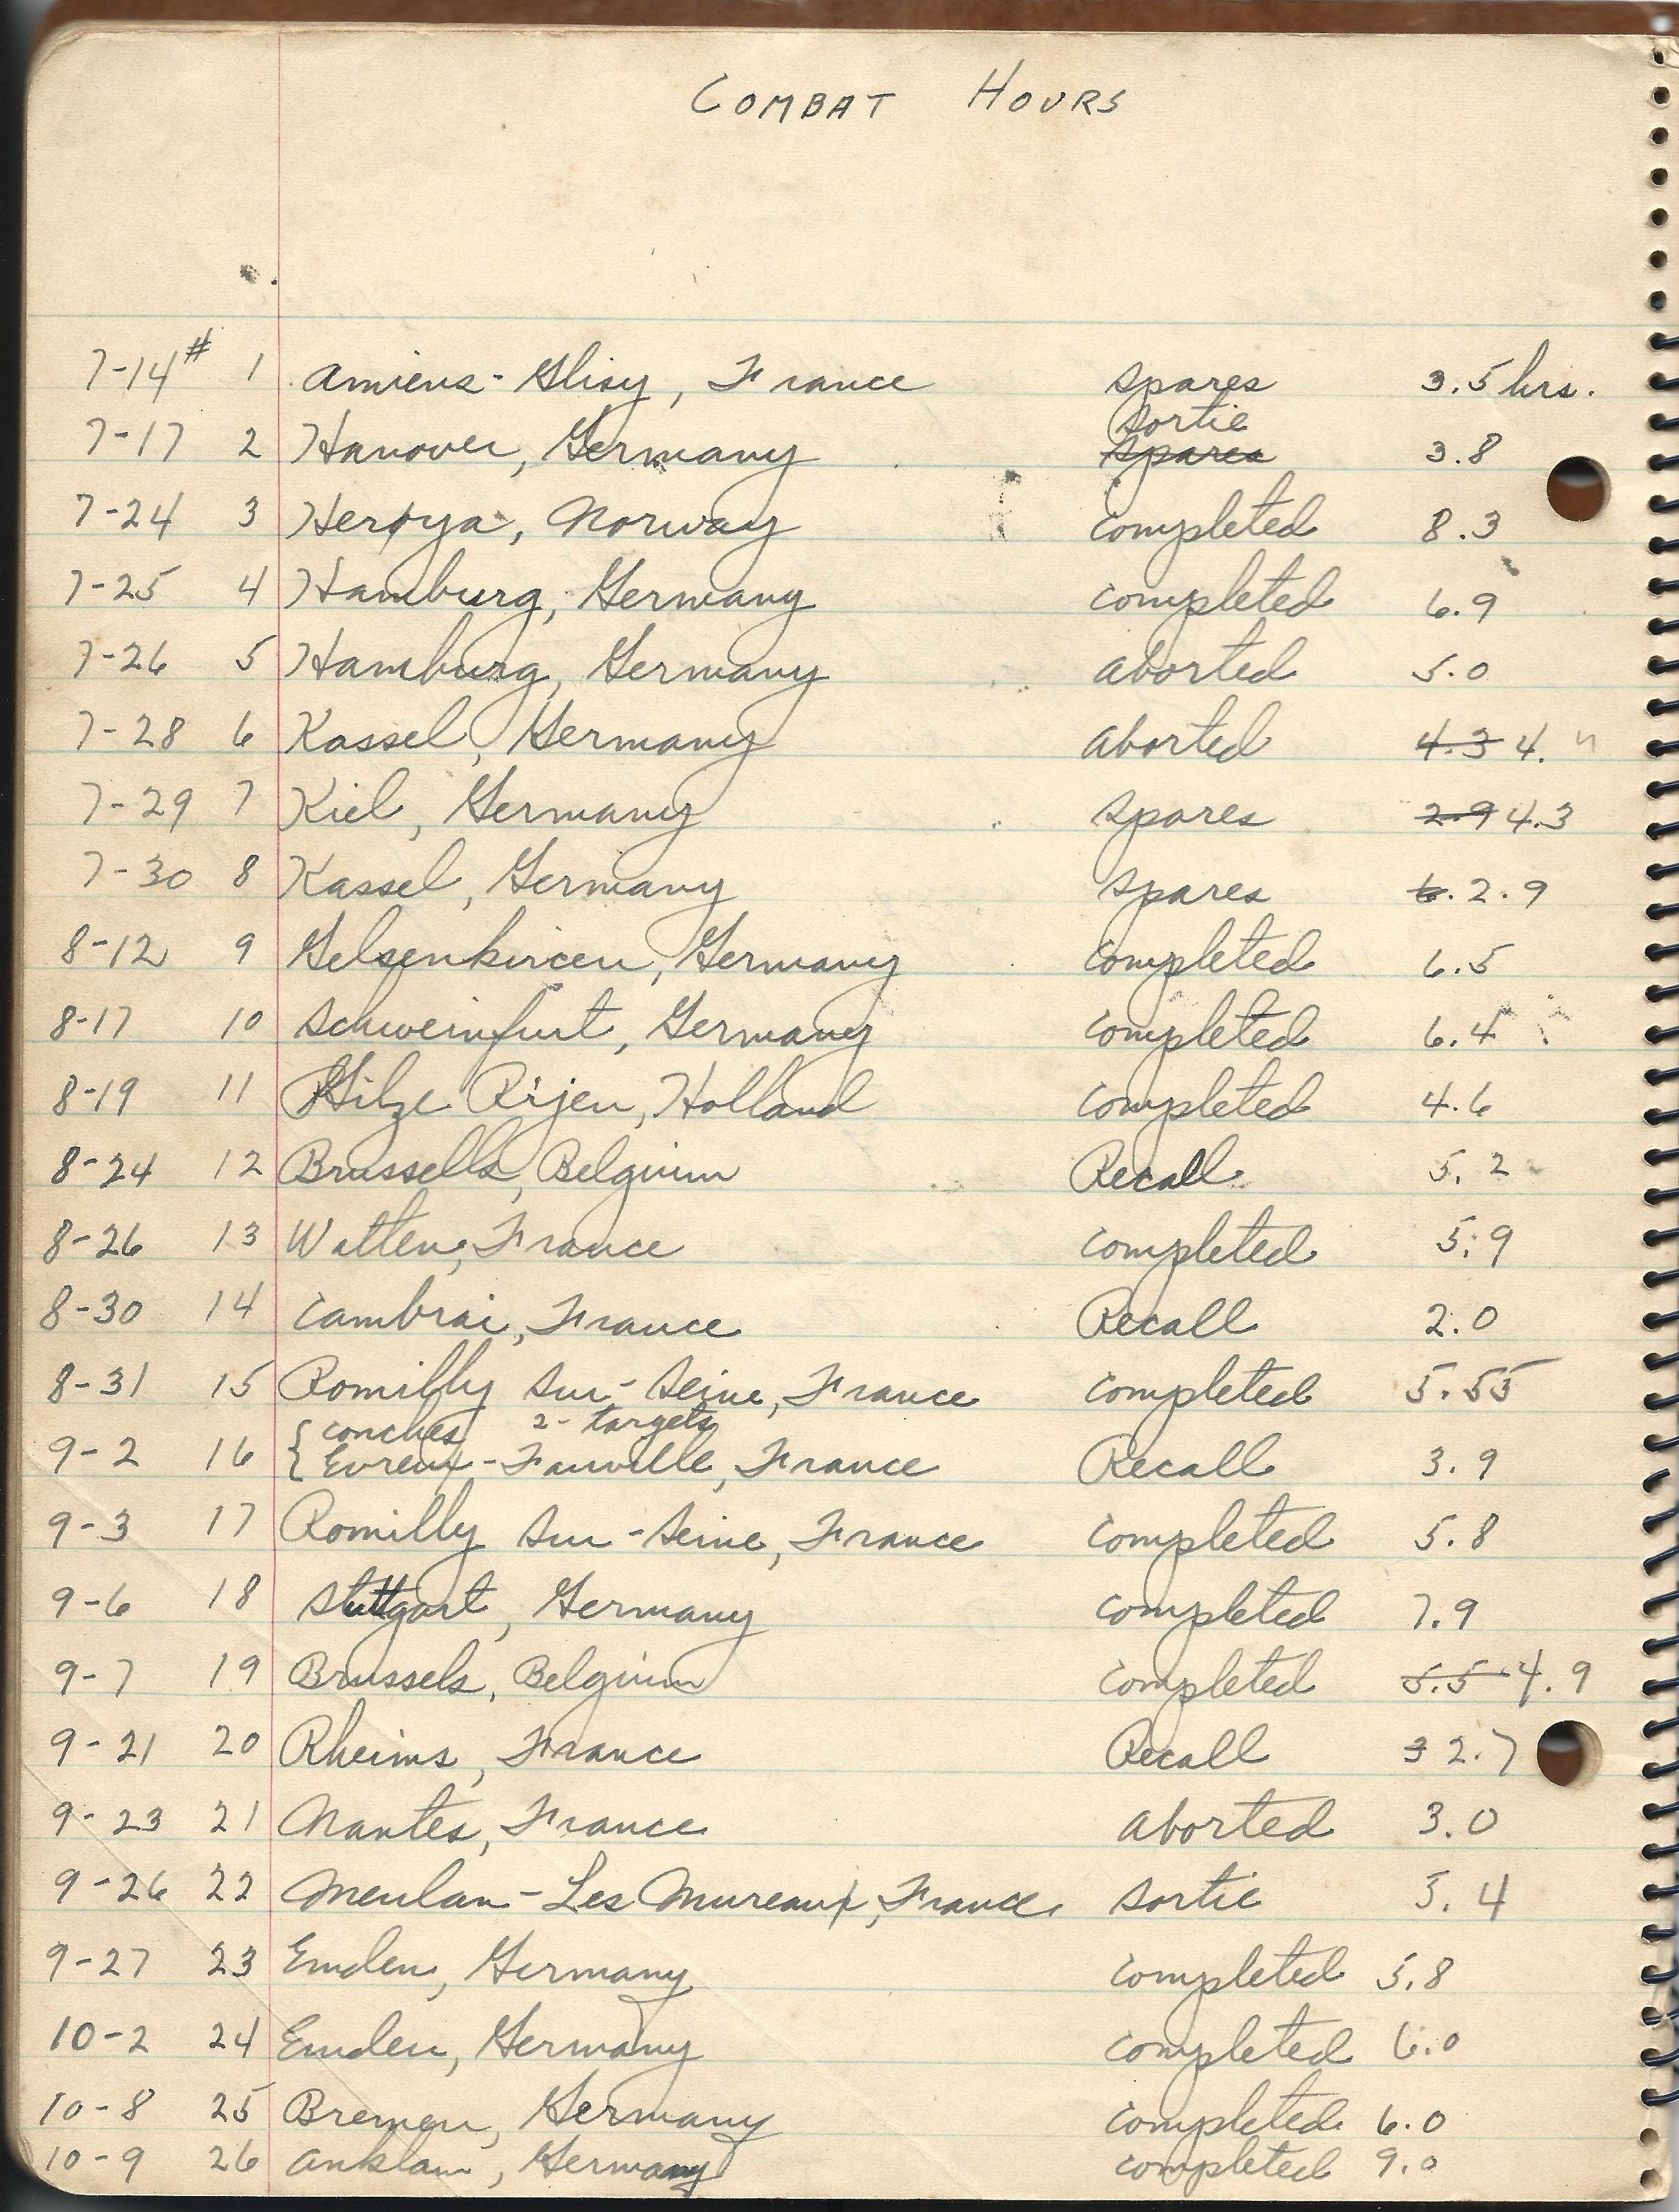 COMBAT HOURS
7-14 # 1 Amiens-Glisy, France spares 3.5 hrs.
sortie
7-17 2 Hanover, Germany spares 3.8
7-24 3 Heroya, Norway completed 8.3
7-25 4 Hamburg, Germany completed 6.9
7-26 5 Hamburg, Germany aborted 5.0
7-28 6 Kassel, Germany aborted 4.3 4.
7-29 7 Kiel, Germany spares 2.9 4.3
7-30 8 Kassel, Germany spares 6. 2.9
8-12 9 Gelsenkircen, Germany completed 6.5
8-17 10 Schweinfurt, Germany completed 6.4
8-19 11 Gilze Rijen, Holland completed 4.6
8-24 12 Brussells, Belgium Recall 5.2
8-26 13 Watten, France completed 5.9
8-30 14 Cambrai, France Recall 2.0
8-31 15 Romilly sur-Seine, France completed 5.55
conches 2-targets
9-2 16 { Evreux-Fauville, France Recall 3.9
9-3 17 Romilly sur-Seine, France completed 5.8
9-6 18 Stuttgart, Germany completed 7.9
9-7 19 Brussels, Belgium completed 5.5 4.9
9-21 20 Rheims, France Recall 3 2.7
9-23 21 Nantes, France aborted 3.0
9-26 22 Meulan-Les Mureaux, France sortie 5.4
9-27 23 Emden, Germany completed 5.8
10-2 24 Emden, Germany completed 6.0
10-8 25 Bremen, Germany completed 6.0
10-9 26 Anklam, Germany completed 9.0